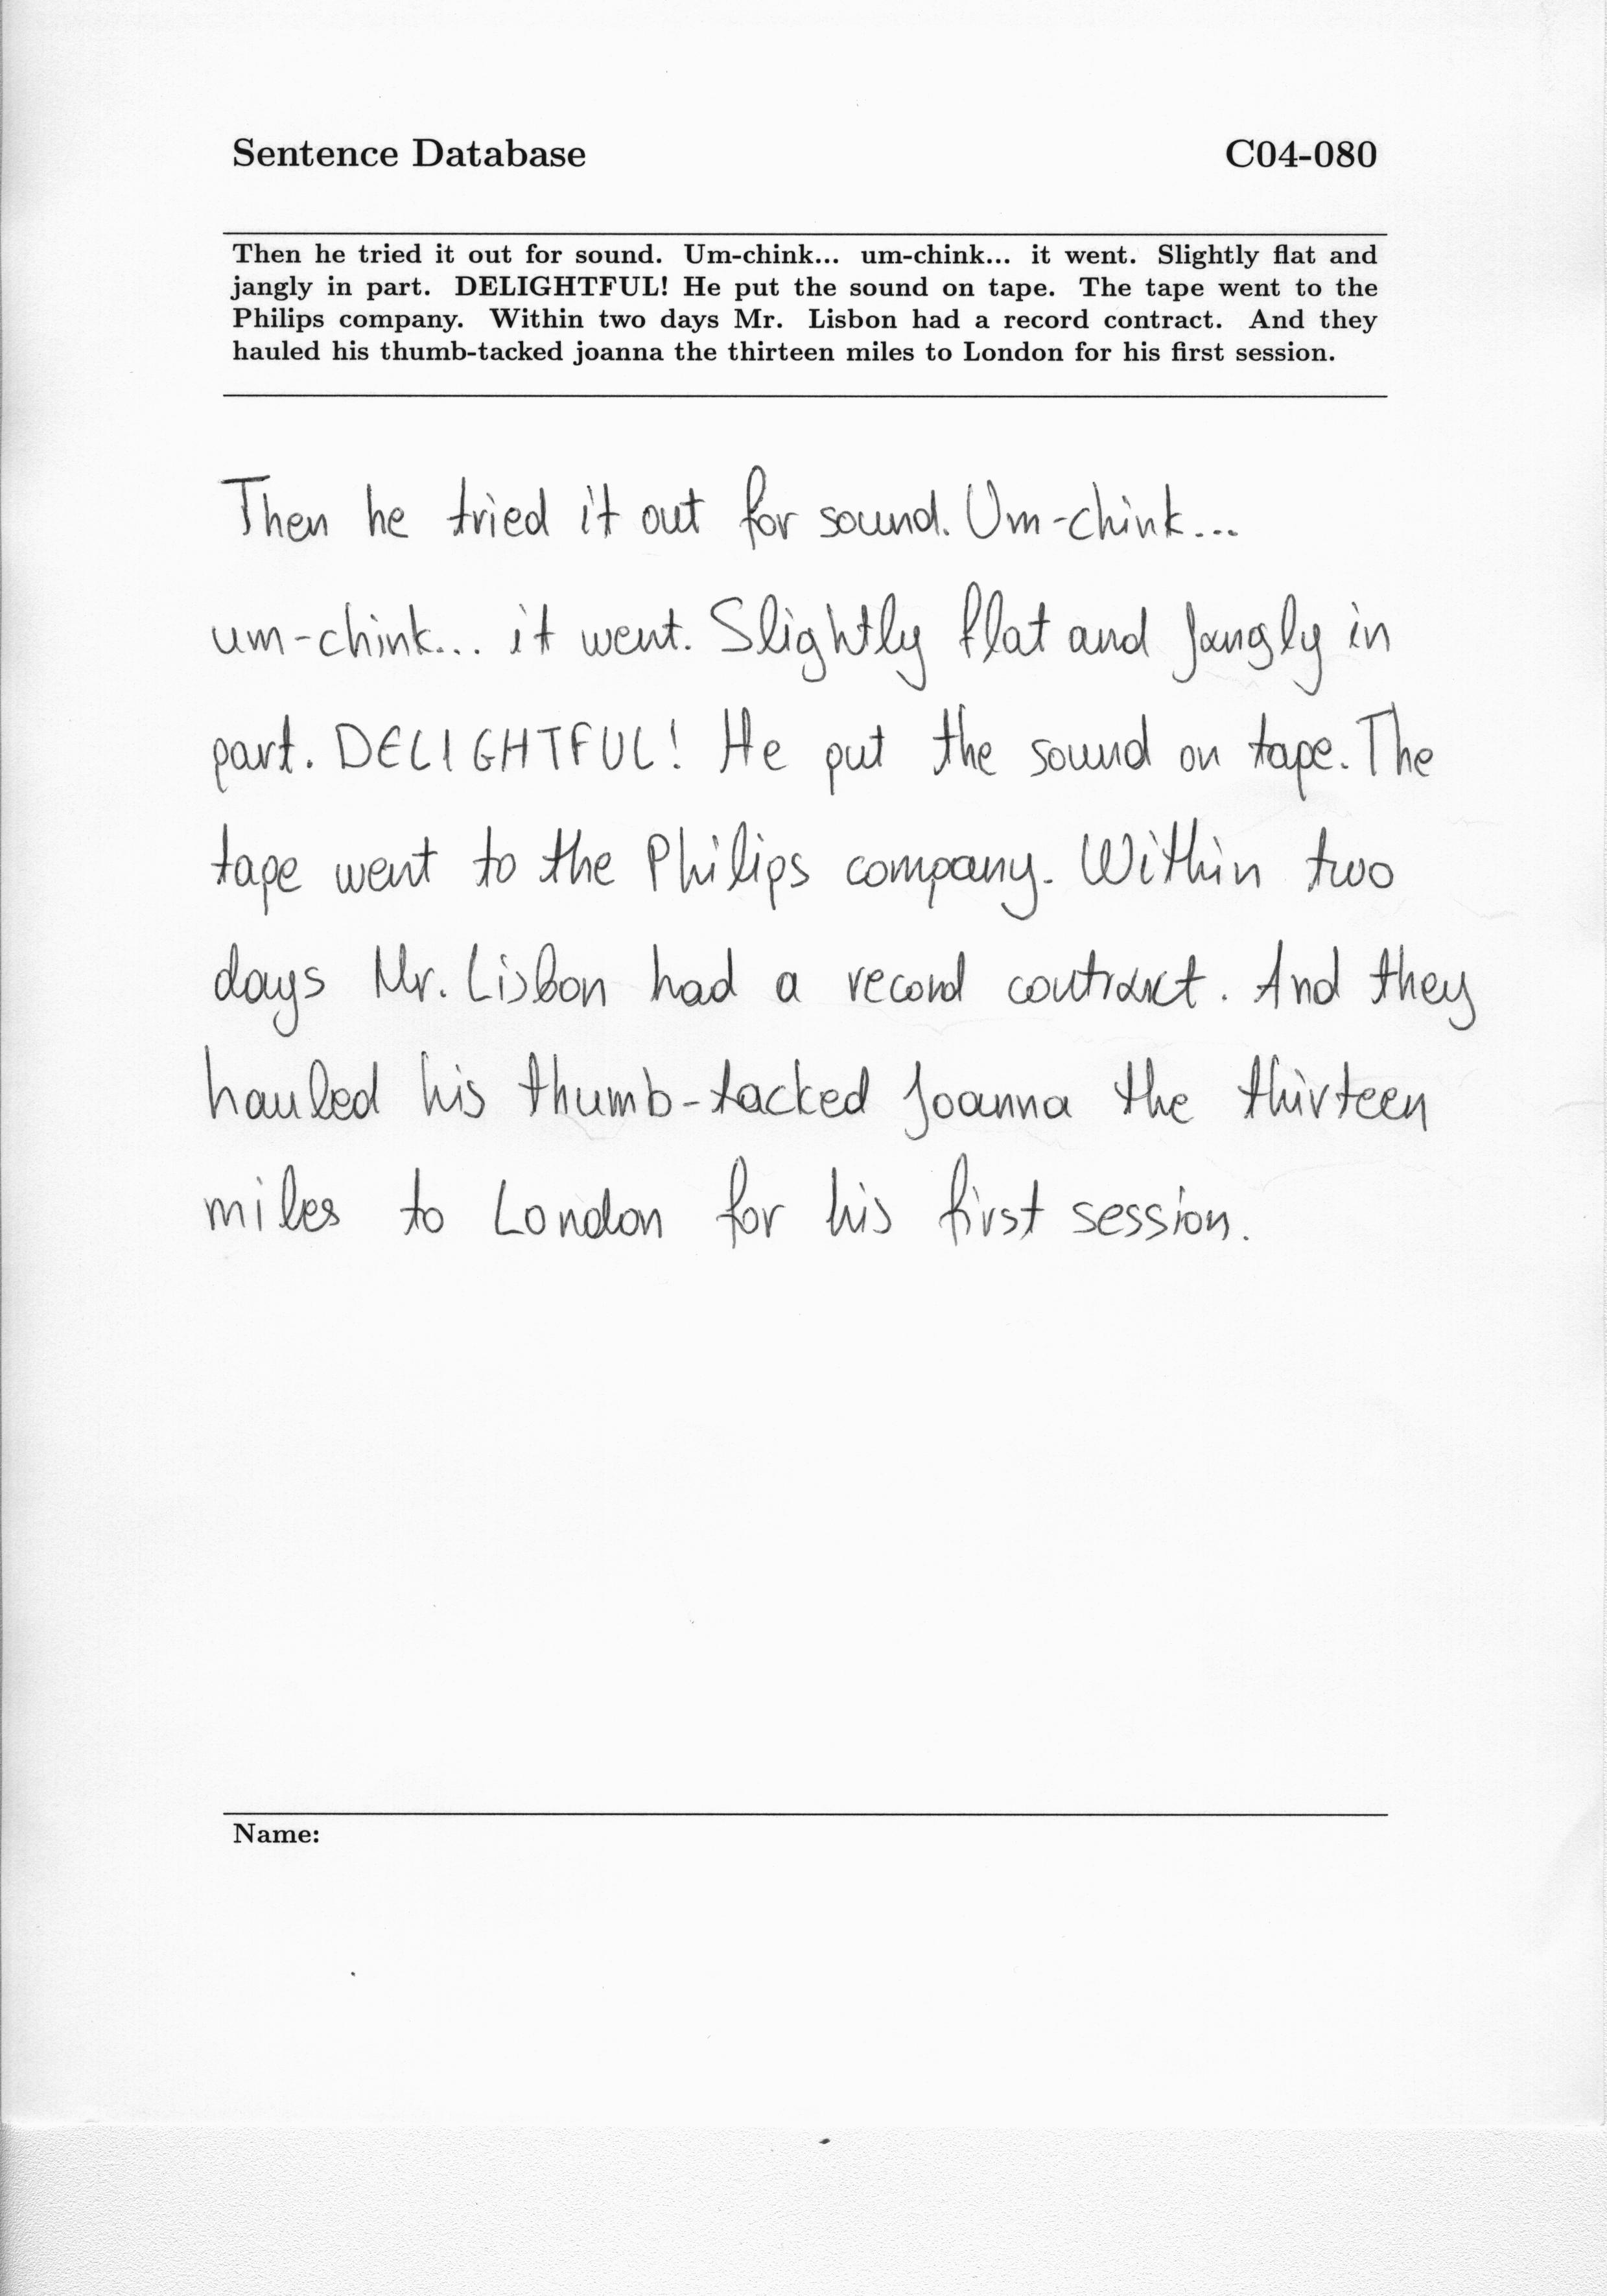 Sentence Database C04-080
Then he tried it out for sound. Um-chink... um-chink... it went. Slightly flat and
jangly in part. DELIGHTFUL! He put the sound on tape. The tape went to the
Philips company. Within two days Mr. Lisbon had a record contract. And they
hauled his thumb-tacked joanna the thirteen miles to London for his first session.
Then he tried it out for sound. Um-chink...
um-chink... it went. Slightly flat and jangly in
part. DELIGHTFUL! He put the sound on tape. The
tape went to the Philips company. Within two
days Mr. Lisbon had a record contract. And they
hauled his thumb-tacked joanna the thirteen
miles to London for his first session.
Name: